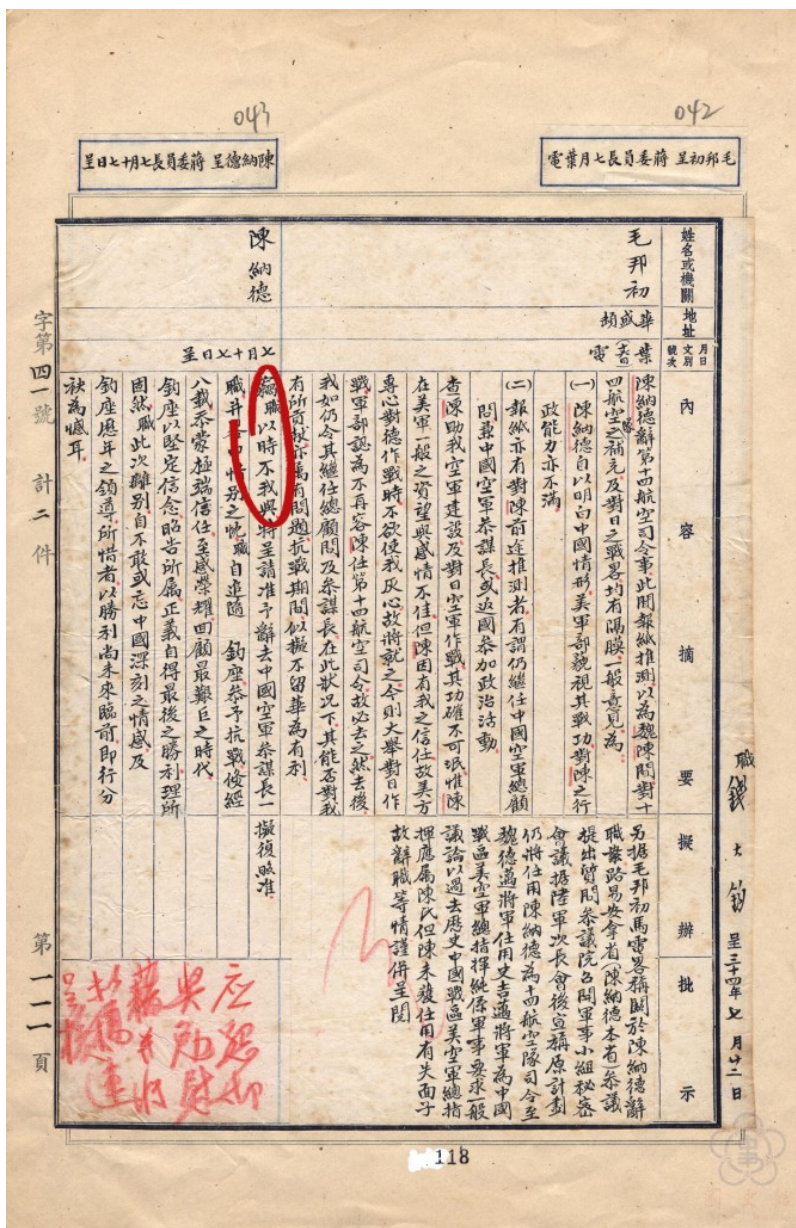 042
毛邦初呈 蔣委員長七月葉電
043
陳納德呈 蔣委員長七月十七日呈
職 錢大鈞 呈 三十四年七月廿二日
姓名或機關
地址
月日
文別
號次
內容摘要
擬辦
批示
毛邦初
華盛頓
葉電
陳納德辭第十四航空司令事此間報紙推測以為魏陳間對十
四航空隊之補充及對日之戰畧均有隔膜一般意見為
(一)陳納德自以明白中國情形美軍部藐視其戰功對陳之行
政能力亦不滿
(二)報紙亦有對陳前途推測者有謂仍繼任中國空軍總顧
問兼中國空軍參謀長或返國參加政治活動
查陳助我空軍建設及對日空軍作戰其功確不可泯惟陳
在美軍一般之資望與感情不佳但陳因有我之信任故美方
專心對德作戰時不欲使我灰心故將就之今則大舉對日作
戰軍部認為不再容陳任第十四航空司令故必去之然去後
我如仍令其繼任總顧問及參謀長在此狀況下其能否對我
有所貢獻亦屬有問題抗戰期間似擬不留華為有利
另據毛邦初馬電畧稱關於陳納德辭
職業路易安拿省(陳納德本省)參議
提出質問參議院召開軍事小組秘密
會議據陸軍次長會後宣稱原計劃
仍將任用陳納德為十四航空隊司令至
魏德邁將軍任用史吉邁將軍為中國
戰區美空軍總指揮純係軍事要求一般
議論以過去歷史中國戰區美空軍總指
揮應屬陳氏但陳未獲任用有失面子
故辭職等情謹併呈閱
陳納德
七月十七日呈
竊職以時不我與特呈請准予辭去中國空軍參謀長一
職并 惜別之忱職自追隨 鈞座參予抗戰倏經
八載忝蒙極端信任至感榮耀回顧最艱巨之時代
鈞座以堅定信念昭告所屬正義自得最後之勝利理所
固然職此次離別自不敢或忘中國深刻之情感及
鈞座歷年之領導所惜者以勝利尚未來臨前即行分
袂為憾耳
擬復照准
应懇切
奖勉慰
藉並將
拟稿速
呈核
字第四一號 計二件 第一一一頁
118